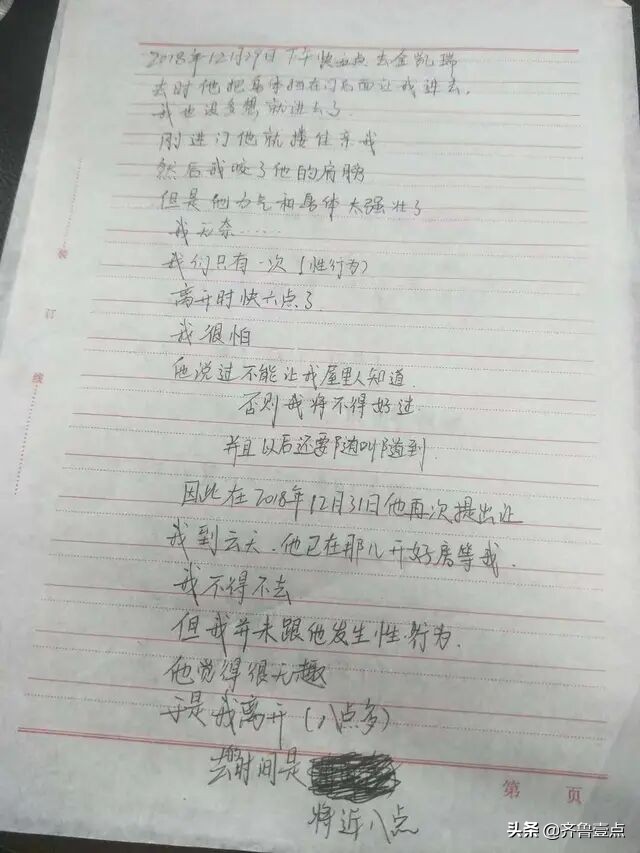 2018年12月29日下午快五点去金凯瑞
去时他把身体掩在门后面让我进去.
我也没多想就进去了.
刚进门他就搂住亲我
然后我咬了他的肩膀
但是他力气和身体太强壮了
我无奈……
我们只有一次(性行为)
离开时快六点了
我很怕
他说过不能让我屋里人知道
否则我将不得好过
并且以后还要随叫随到
因此在2018年12月31日他再次提出让
我到云天.他已在那儿开好房等我.
我不得不去
但我并未跟他发生性行为.
他觉得很无趣
于是我离开(八点多)
去时间是
将近八点
装
订
线
第 页
头条 @齐鲁壹点